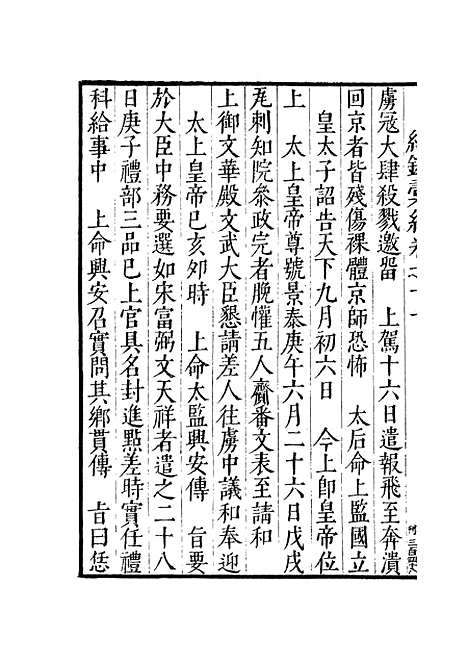 虜冦大肆殺戮邀畱　上駕十六日遣報飛至奔潰
回京者皆殘傷裸體京師恐怖　太后命上監國立
皇太子詔告天下九月初六日　今上卽皇帝位
上　太上皇帝尊號景泰庚午六月二十六日戊戌
尾剌知院叅政完者脫懽五人齎番文表至請和
上御文華殿文武大臣懇請差人往虜中議和奉迎
太上皇帝巳亥夘時　上命太監興安傳　旨要
於大臣中務要選如宋富弼文天祥者遣之二十八
日庚子禮部三品巳上官具名封進點差時實任禮
科給事中　上命興安召實問其鄉貫傳　旨曰恁